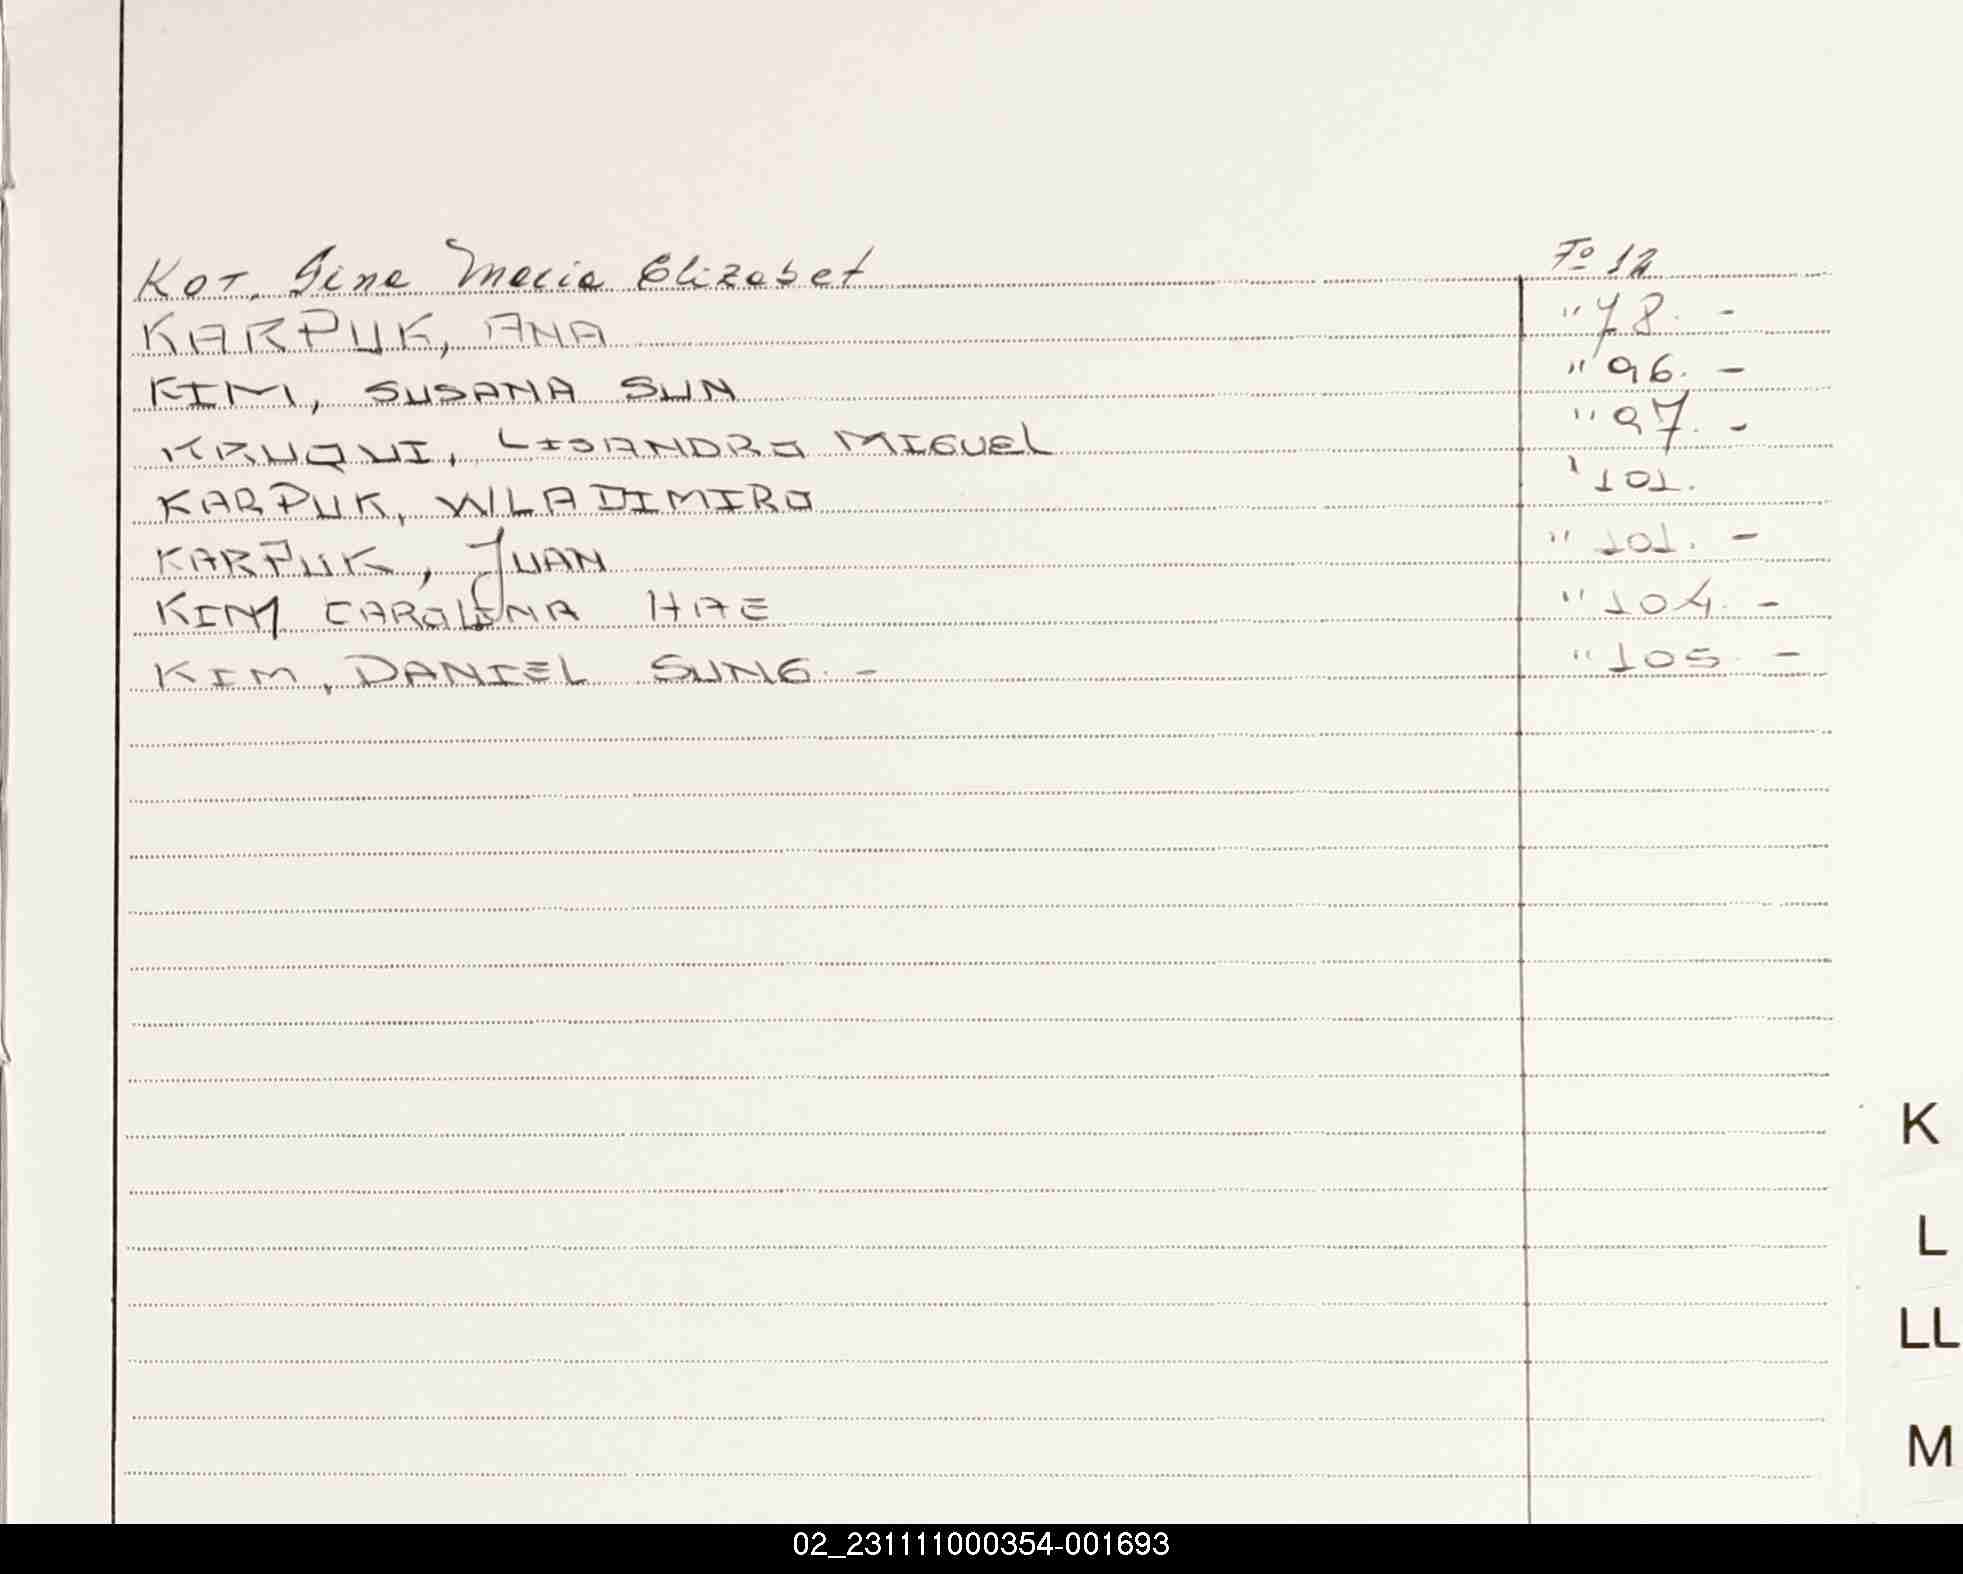 Kot, Gina Maria Elizabet Fo 12
KARPUK, ANA " 78. -
KIM, SUSANA SUN " 96. -
KRUQUI, LISANDRO MIGUEL " 97. -
KARPUK, WLADIMIRO ' 101.
KARPUK, JUAN " 101. -
KIM CAROLINA HAE " 104. -
KIM, DANIEL SUNG. - " 105 -
K
L
LL
M
02_231111000354-001693